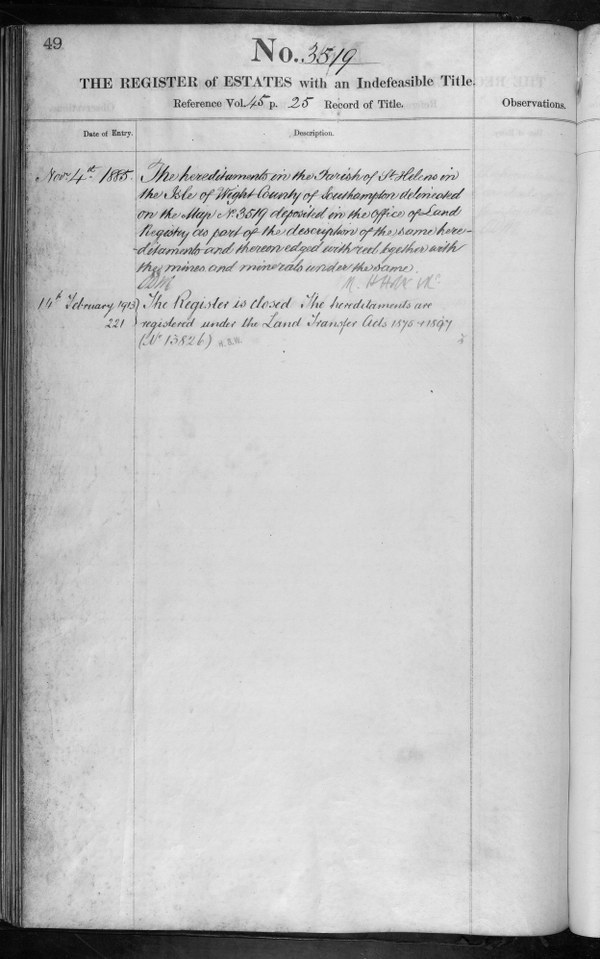 49
No. 3519
THE REGISTER of ESTATES with an Indefeasible Title.
Reference Vol. 45 p. 25 Record of Title.
Observations.
Date of Entry.
Description.
Novr. 4th 1885. The hereditaments in the Parish of St Helens in
the Isle of Wight County of Southampton delineated
on the Map No. 3519 deposited in the Office of Land
Registry as part of the description of the same here-
-ditaments and thereon edged with red together with
the mines and minerals under the same.
14th February 1913 The Register is closed The hereditaments are
221 registered under the Land Transfer Acts 1875 & 1897
(No 13826)